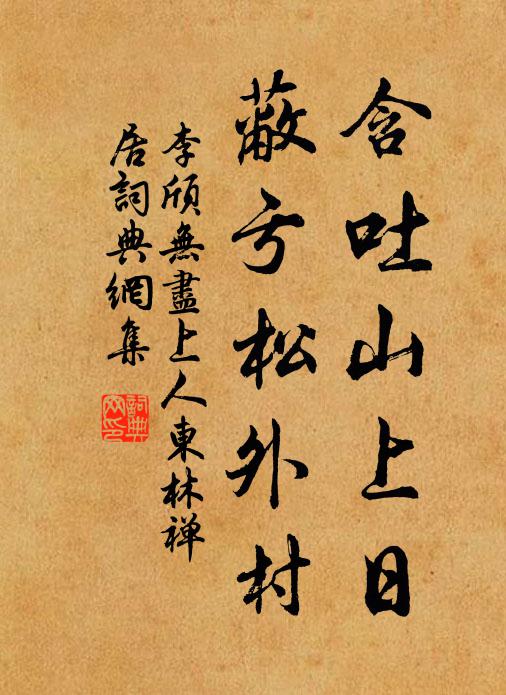 含吐山上日
蔽亏松外村
李颀無盡上人東林禅
居詞典網集
詞典網印